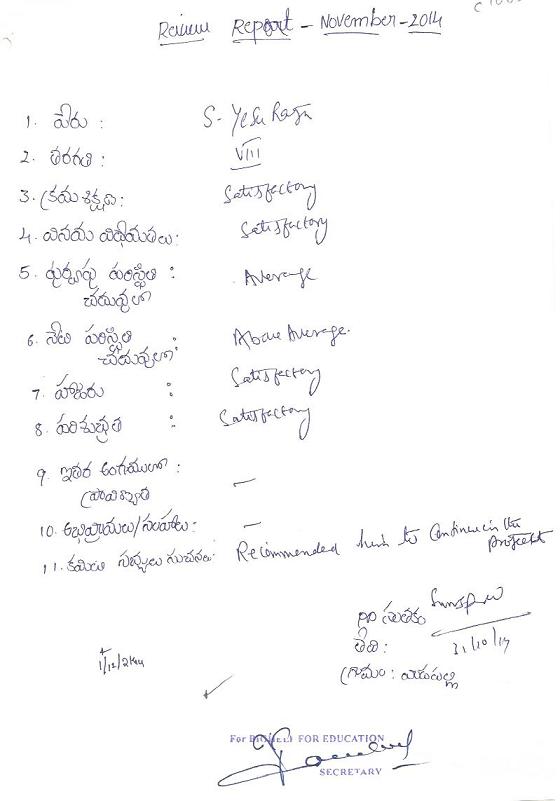 Review Report - November-2014
1. పేరు : S. Yesu Raju
2. తరగతి : VIII
3. క్రమశిక్షణ: Satisfactory
4. వినయ విధేయతలు: Satisfactory
5. పూర్వపు పరిస్థితి : Average
చదువులో
6. నేటి పరిస్థితి : Above Average.
చదువులో
7. హాజరు : Satisfactory
8. పరిశుభ్రత : Satisfactory
9. ఇతర అంగములలో : —
ప్రావీణ్యత
10. అభిప్రాయలు/సలహాలు: —
11. కమిటి సభ్యులు సూచనలు: Recommended him to Continue in the
project
సంతకం
తేది: 31/10/14
గ్రామం :
For PROJECT FOR EDUCATION
SECRETARY